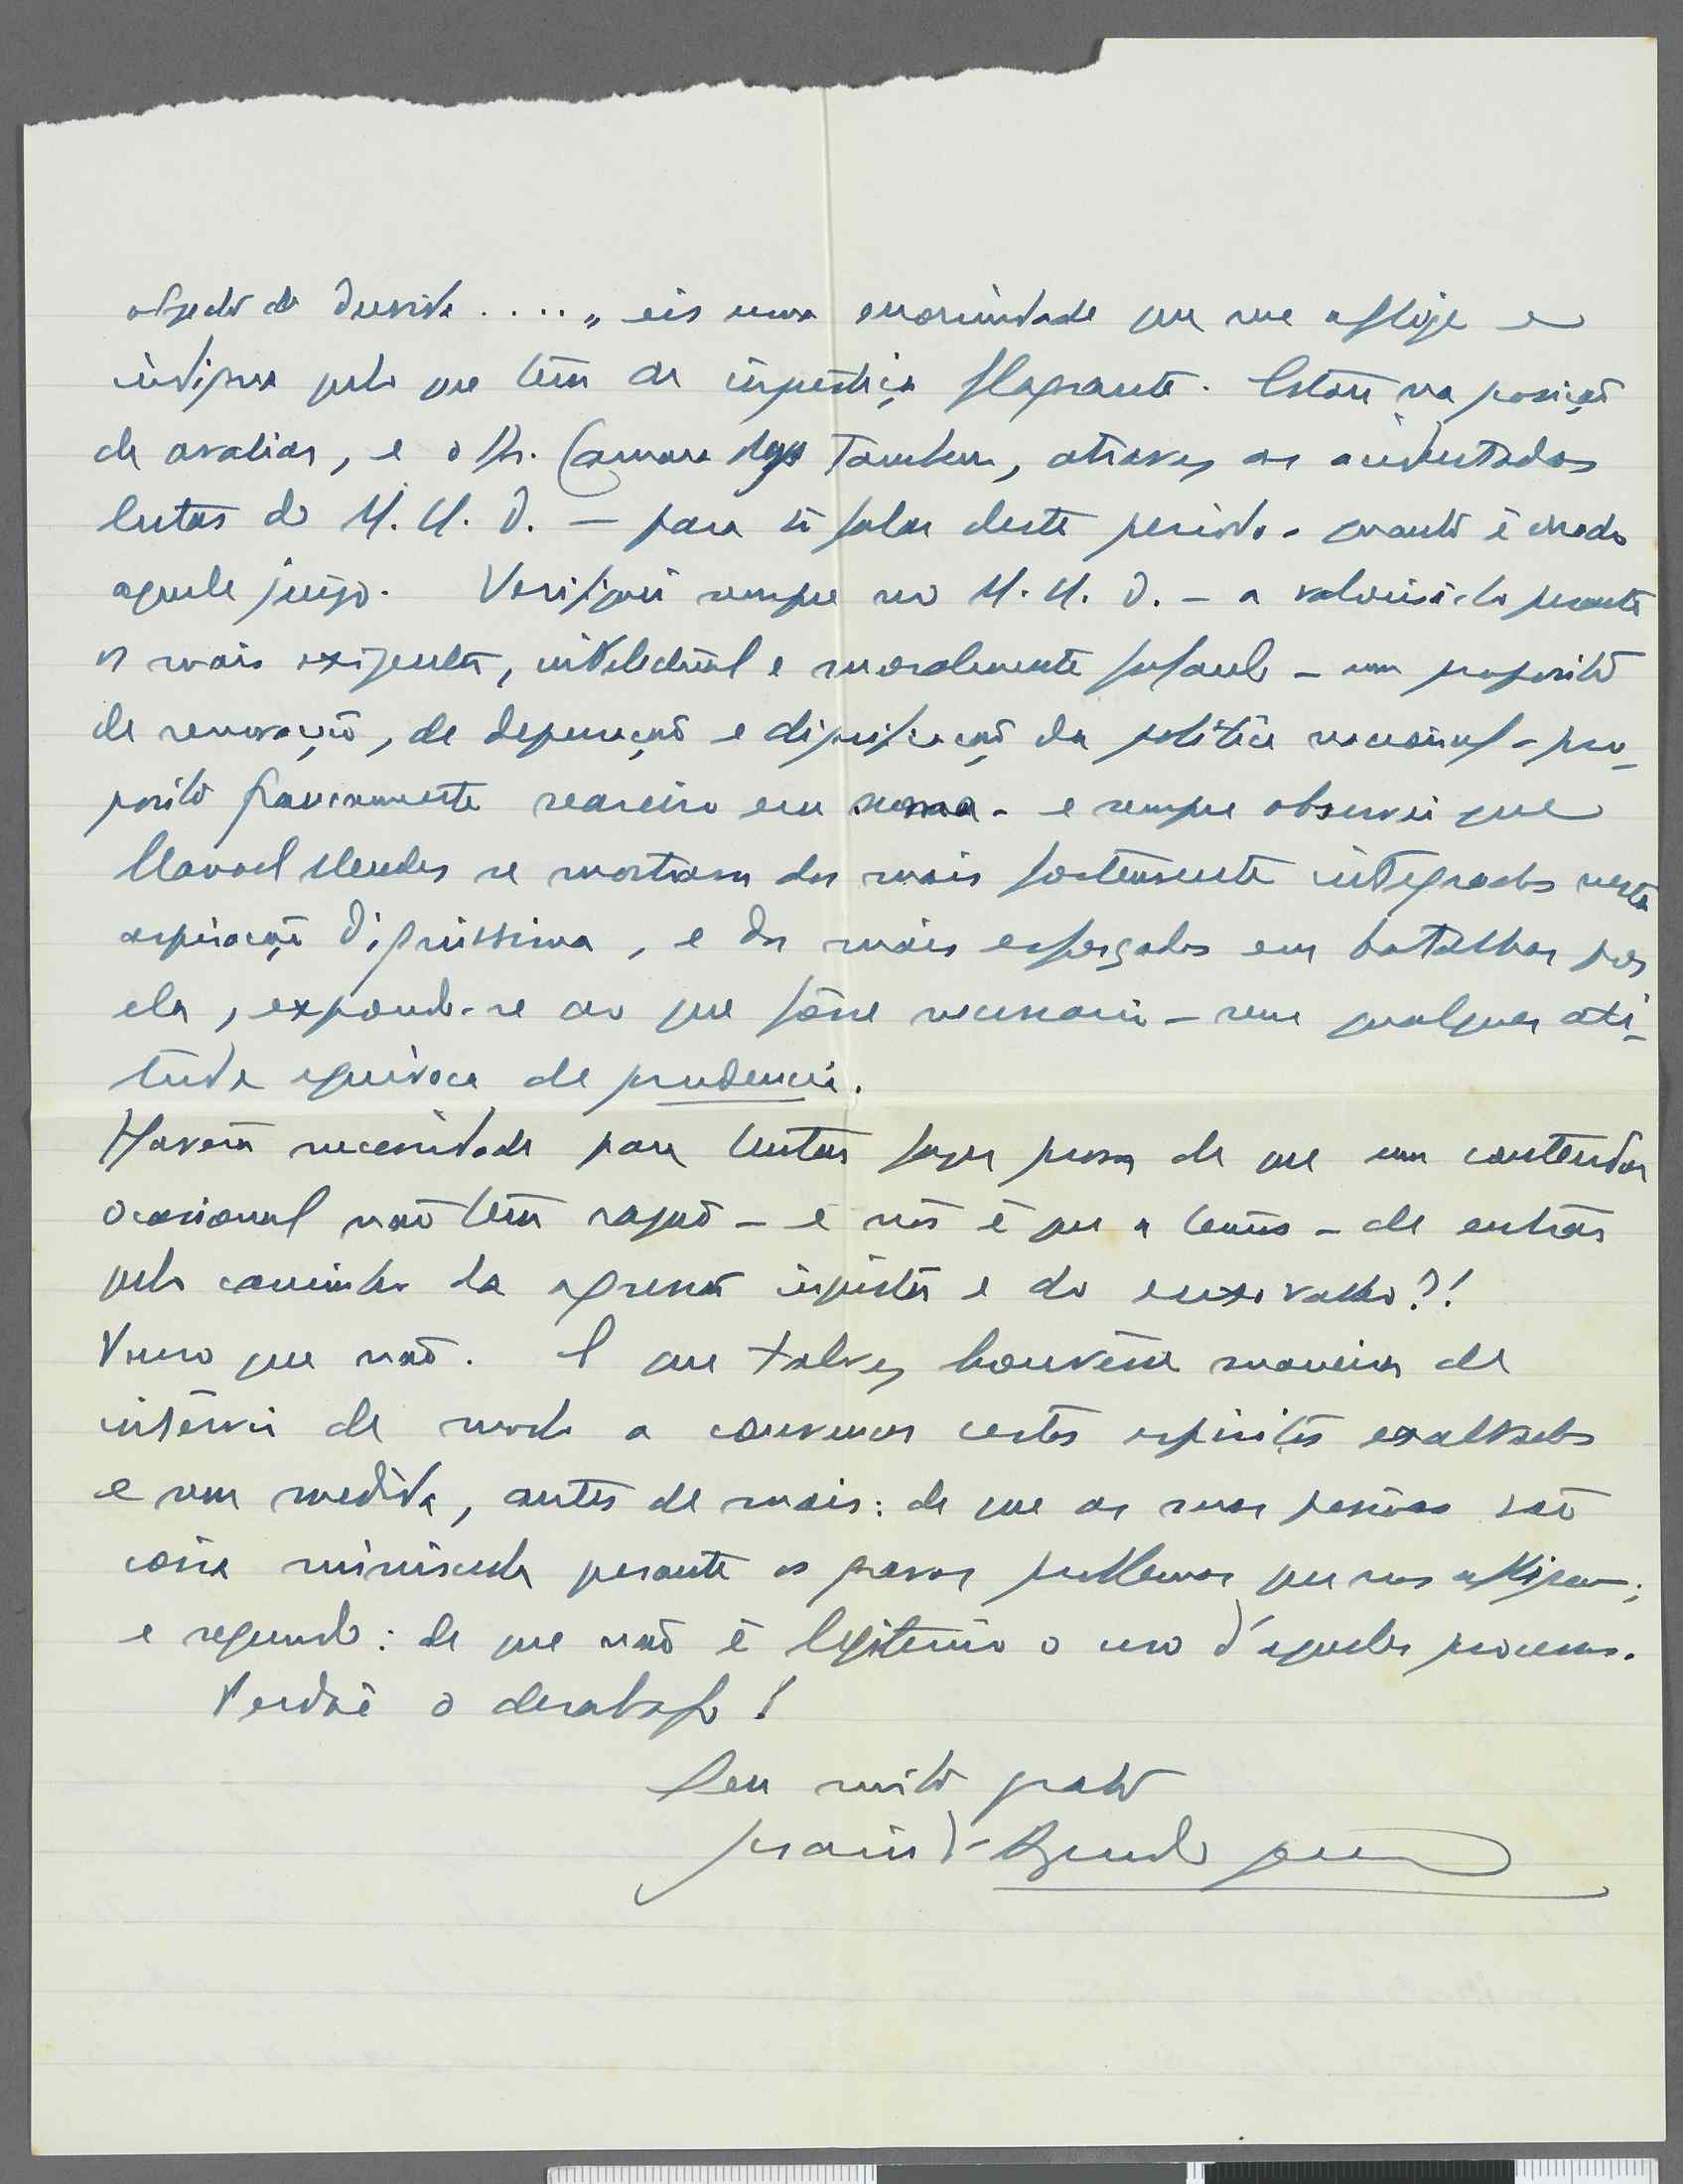 objecto de duvida ....,, eis uma enormidade que me aflige e
indigna pelo que tem de injustiça flagrante. Estou na posição
de avaliar, e o Dr. Camara Tambem, atraves as acidentadas
lutas do M. U. D. — para só falar deste periodo - quanto é errado
aquele juizo. Verifiquei sempre no M. U. D. — a valorisá-lo perante
os mais exigentes, intelectual e moralmente falando — um proposito
de renovação, de depuração e dignificação da politica nacional - pro-
posito francamente seareiro em suma - e sempre observei que
Manoel Mendes se mostrava dos mais fortemente integrados nesta
aspiração dignissima, e dos mais esforçados em batalhar por
ela, expondo-se ao que fosse necessario — sem qualquer ati-
tude equivoca de prudencia.
Haverá necessidade para tentar fazer prova de que um contendor
ocasional não tem razão — e nós é que a temos — de entrar
pelo caminho da agressão injusta e do enxovalho?!
Penso que não. E que talvez houvesse maneira de
intervir de modo a convencer certos espiritos exaltados
e sem medida, antes de mais: de que as suas pessoas são
coisa minuscula perante os graves problemas que nos afligem;
e segundo: de que não é legitimo o uso d'aqueles processos.
Perdoe o desabafo!
Seu muito grato